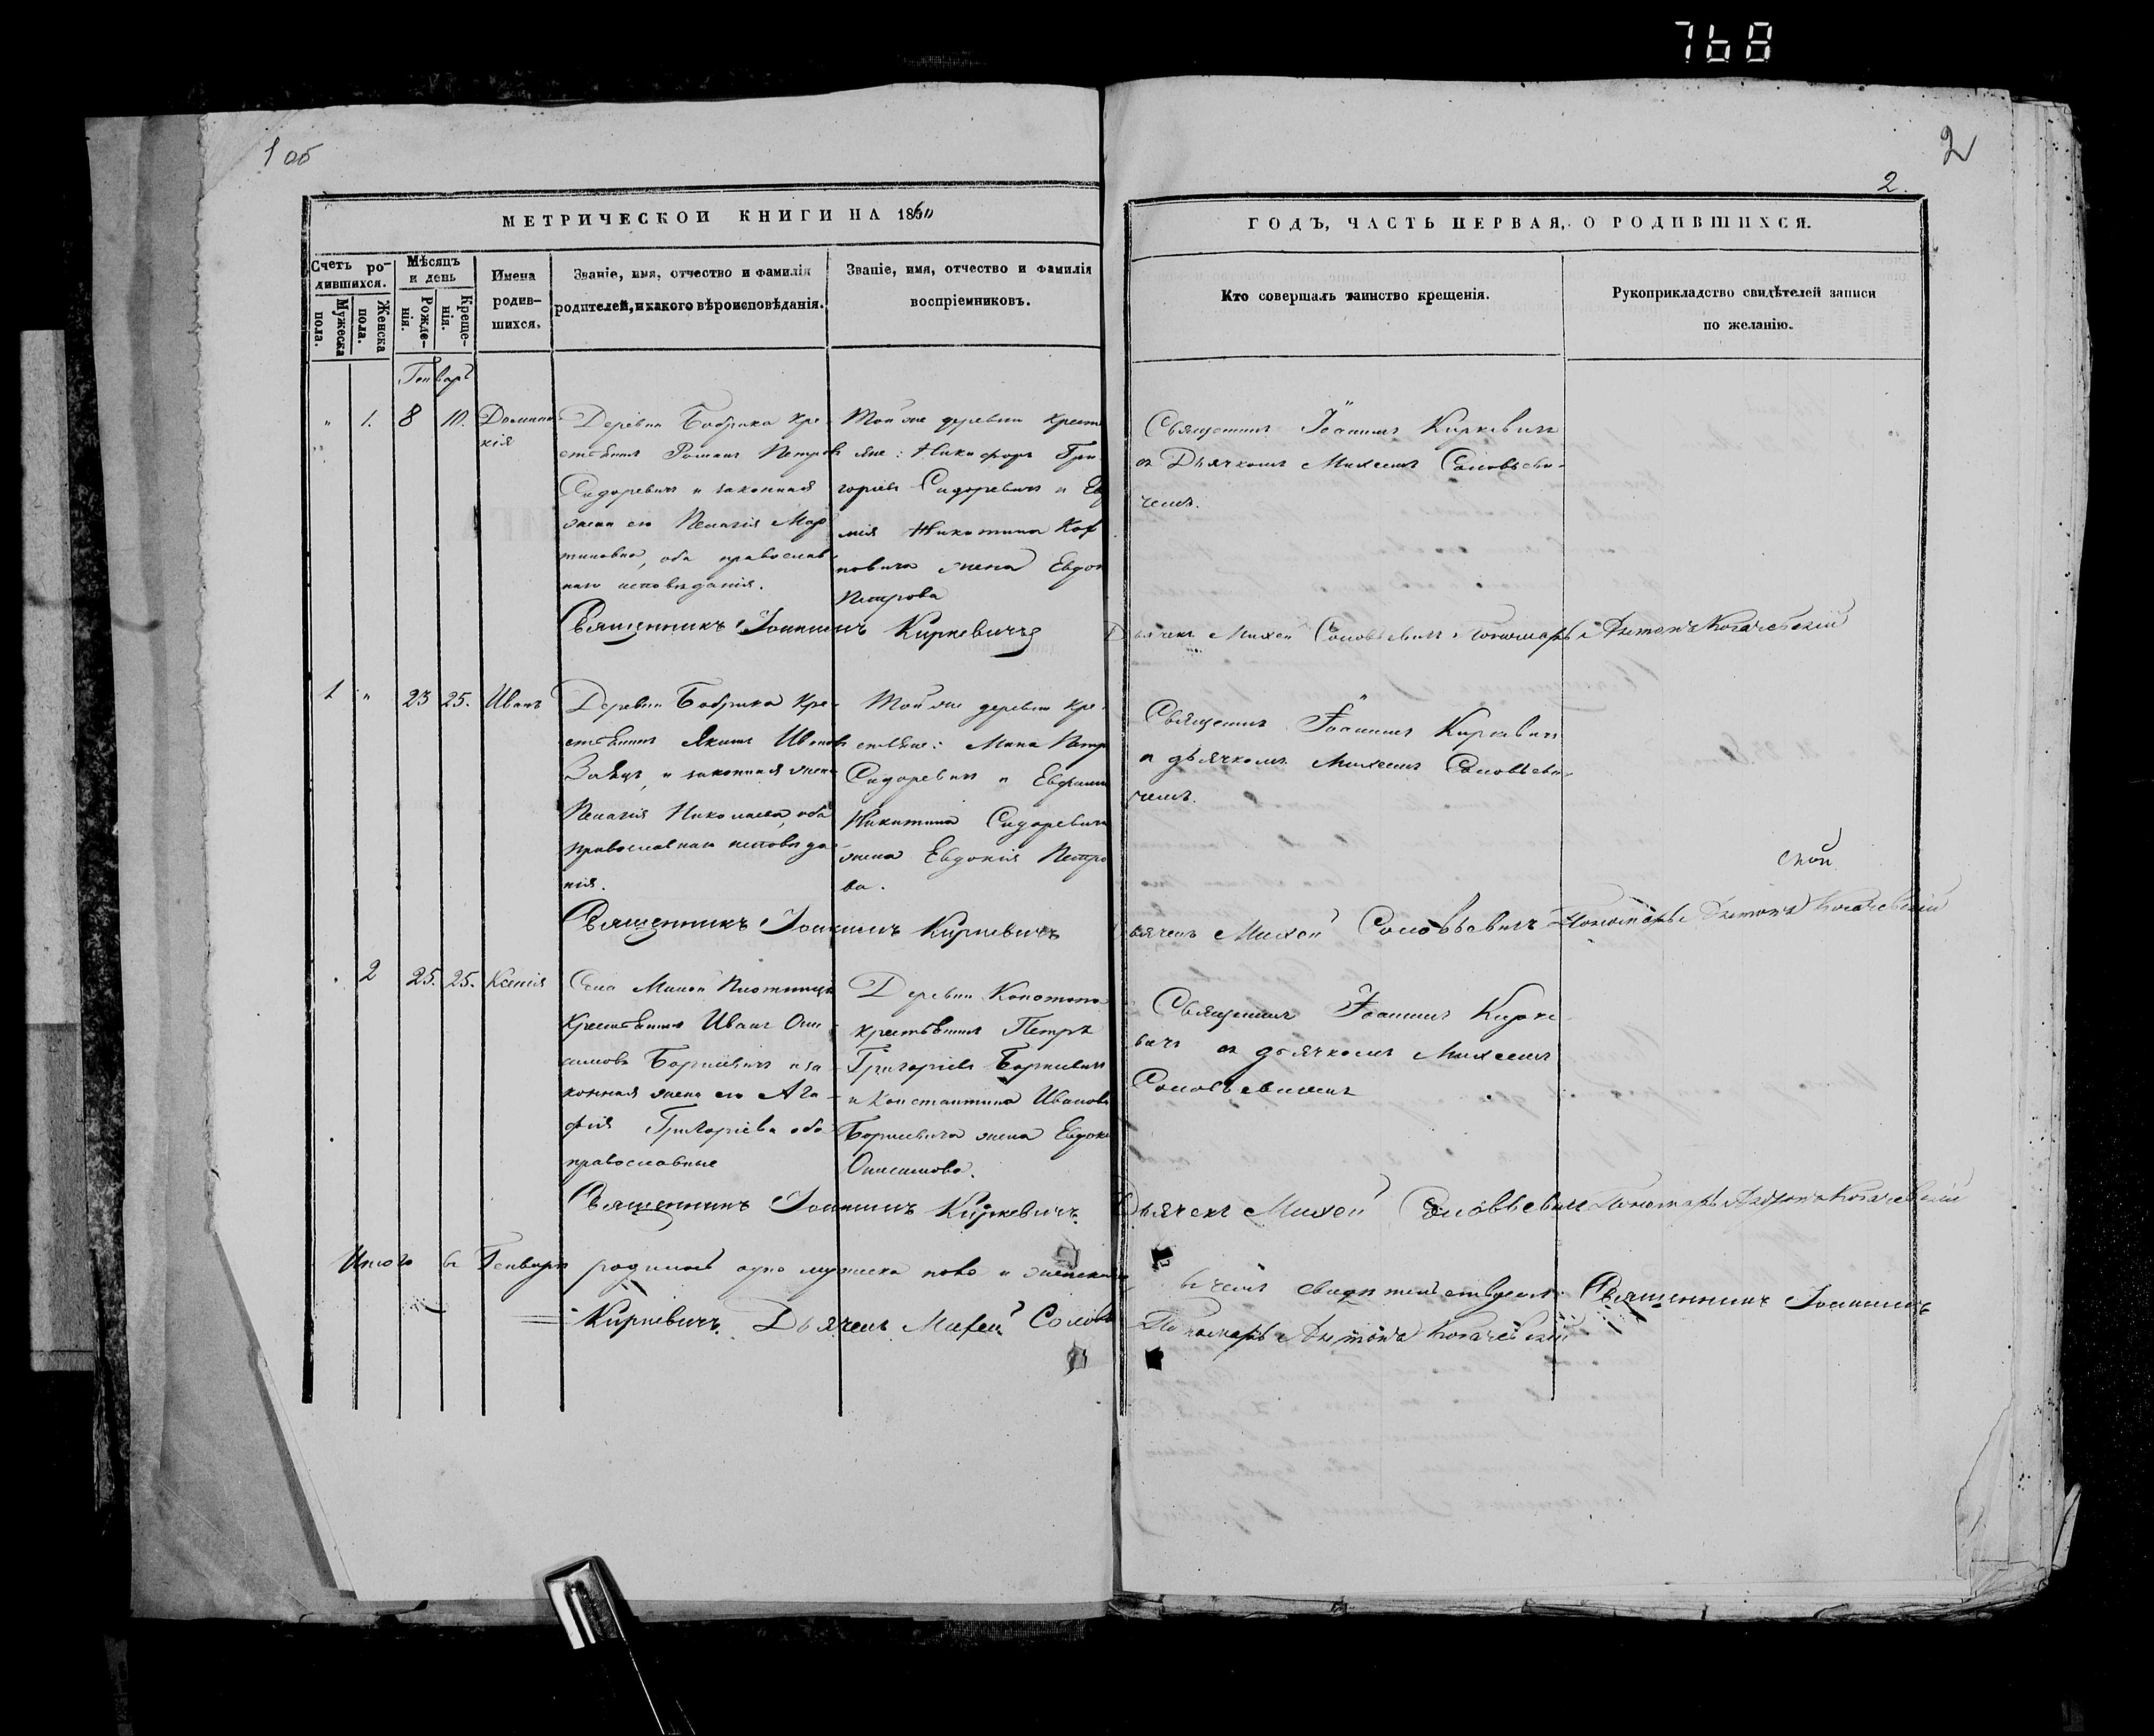 768
1 об
2
2.
МЕТРИЧЕСКОИ КНИГИ НА 1860
ГОДЪ, ЧАСТЬ ПЕРВАЯ, О РОДИВШИХСЯ.
Счетъ ро-
дившихся.
Мужеска
пола.
Женска
пола.
Мѣсяцъ
и день
Рожде-
нія.
Креще-
нія.
Имена
родив-
шихся.
Званіе, имя, отчество и фамилія
родителей, и какого вѣроисповѣданія.
Званіе, имя, отчество и фамилія
воспріемниковъ.
Кто совершалъ таинство крещенія.
Рукоприкладство свидѣтелей записи
по желанію.
Генварь
" 1. 8 10.
Домини
кія
Деревни Бобрика кре-
стьянинъ Романъ Петровъ
Сидоревичъ и законная
жена его Пелагія Мар
тиновна, оба православ
наго исповѣданія.
Той же деревни крест
яне: Никифоръ Гри
горіевъ Сидоревичъ и
мія Никитина
повича жена Евдок
Петрова
Священникъ Іоаннъ Киркевичъ
съ Дьячкомъ Михеемъ Соловьеви-
чемъ.
Священникъ Іоакимъ Киркевичъ
Дьячекъ Михей Соловьевичъ Пономарь Антонъ Когачевскій
1 " 23 25. Иванъ
Деревни Бобрика кре-
стьянинъ Якимъ Ивановъ
Заяцъ, и законная жена
Пелагія Николаева, оба
православнаго исповѣда-
нія.
Той же деревни кре-
стьяне: Мина Петр
Сидоревичъ и Евфими
Никитина Сидоревича
жена Евдокія Петро
ва.
Священникъ Іоакимъ Киркевичъ
съ дьячкомъ Михеемъ Соловьеви-
чемъ.
ской
Священникъ Іоакимъ Киркевичъ
Дьячекъ Михей Соловьевичъ Пономарь Антонъ Когачевскій
2 25. 25. Ксенія
Села Малой Плотницы
Крестьянинъ Иванъ Они
симовъ Борисевичъ и за
конная жена его Ага-
фія Григоріева оба
православные
Деревни Конотопа
крестьянинъ Петръ
Григоріевъ Борисевичъ
и Константина Иванова
Борисевича жена Евдокі
Онисимова.
Священникъ Іоакимъ Кирке
вичъ съ дьячкомъ Михеемъ
Соловьевичемъ
Священникъ Іоакимъ Киркевичъ.
Дьячекъ Михей Соловьевичъ Пономарь Антонъ Когачевскій
Итого въ Генварѣ родилось одно мужеска пола и женска
въ чемъ свидѣтельствуемъ. Священникъ Іоакимъ
Киркевичъ. Дьячекъ Михей Солов
Пономарь Антонъ Когачевскій